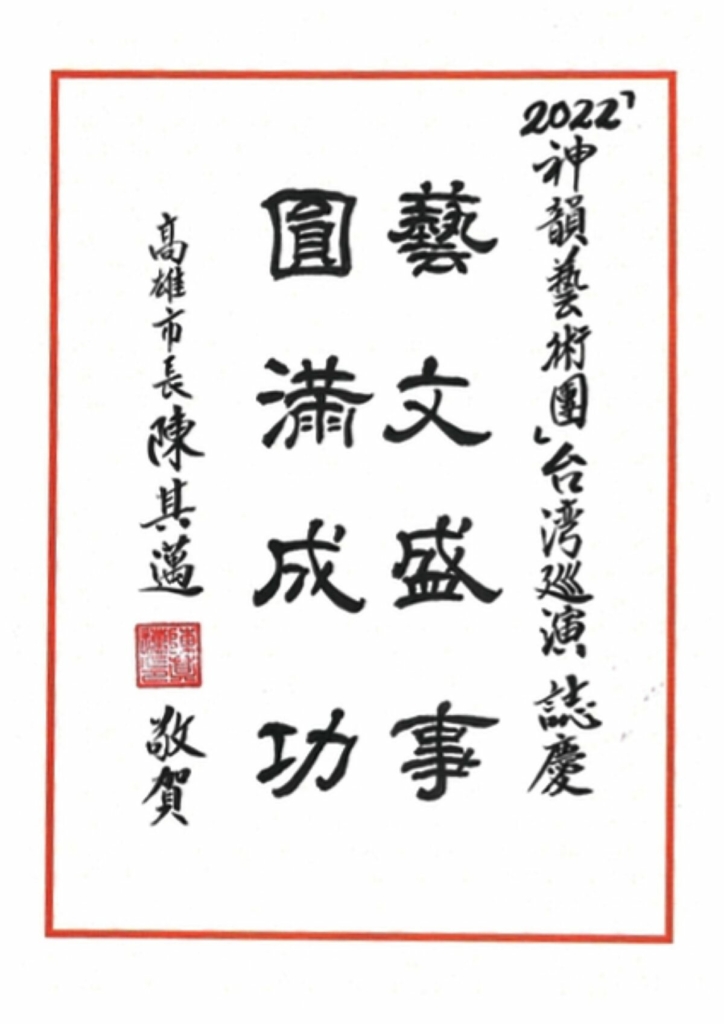 2022「神韻藝術團」台湾巡演 誌慶
藝文盛事
圓滿成功
高雄市長 陳其邁 敬賀
陳其邁